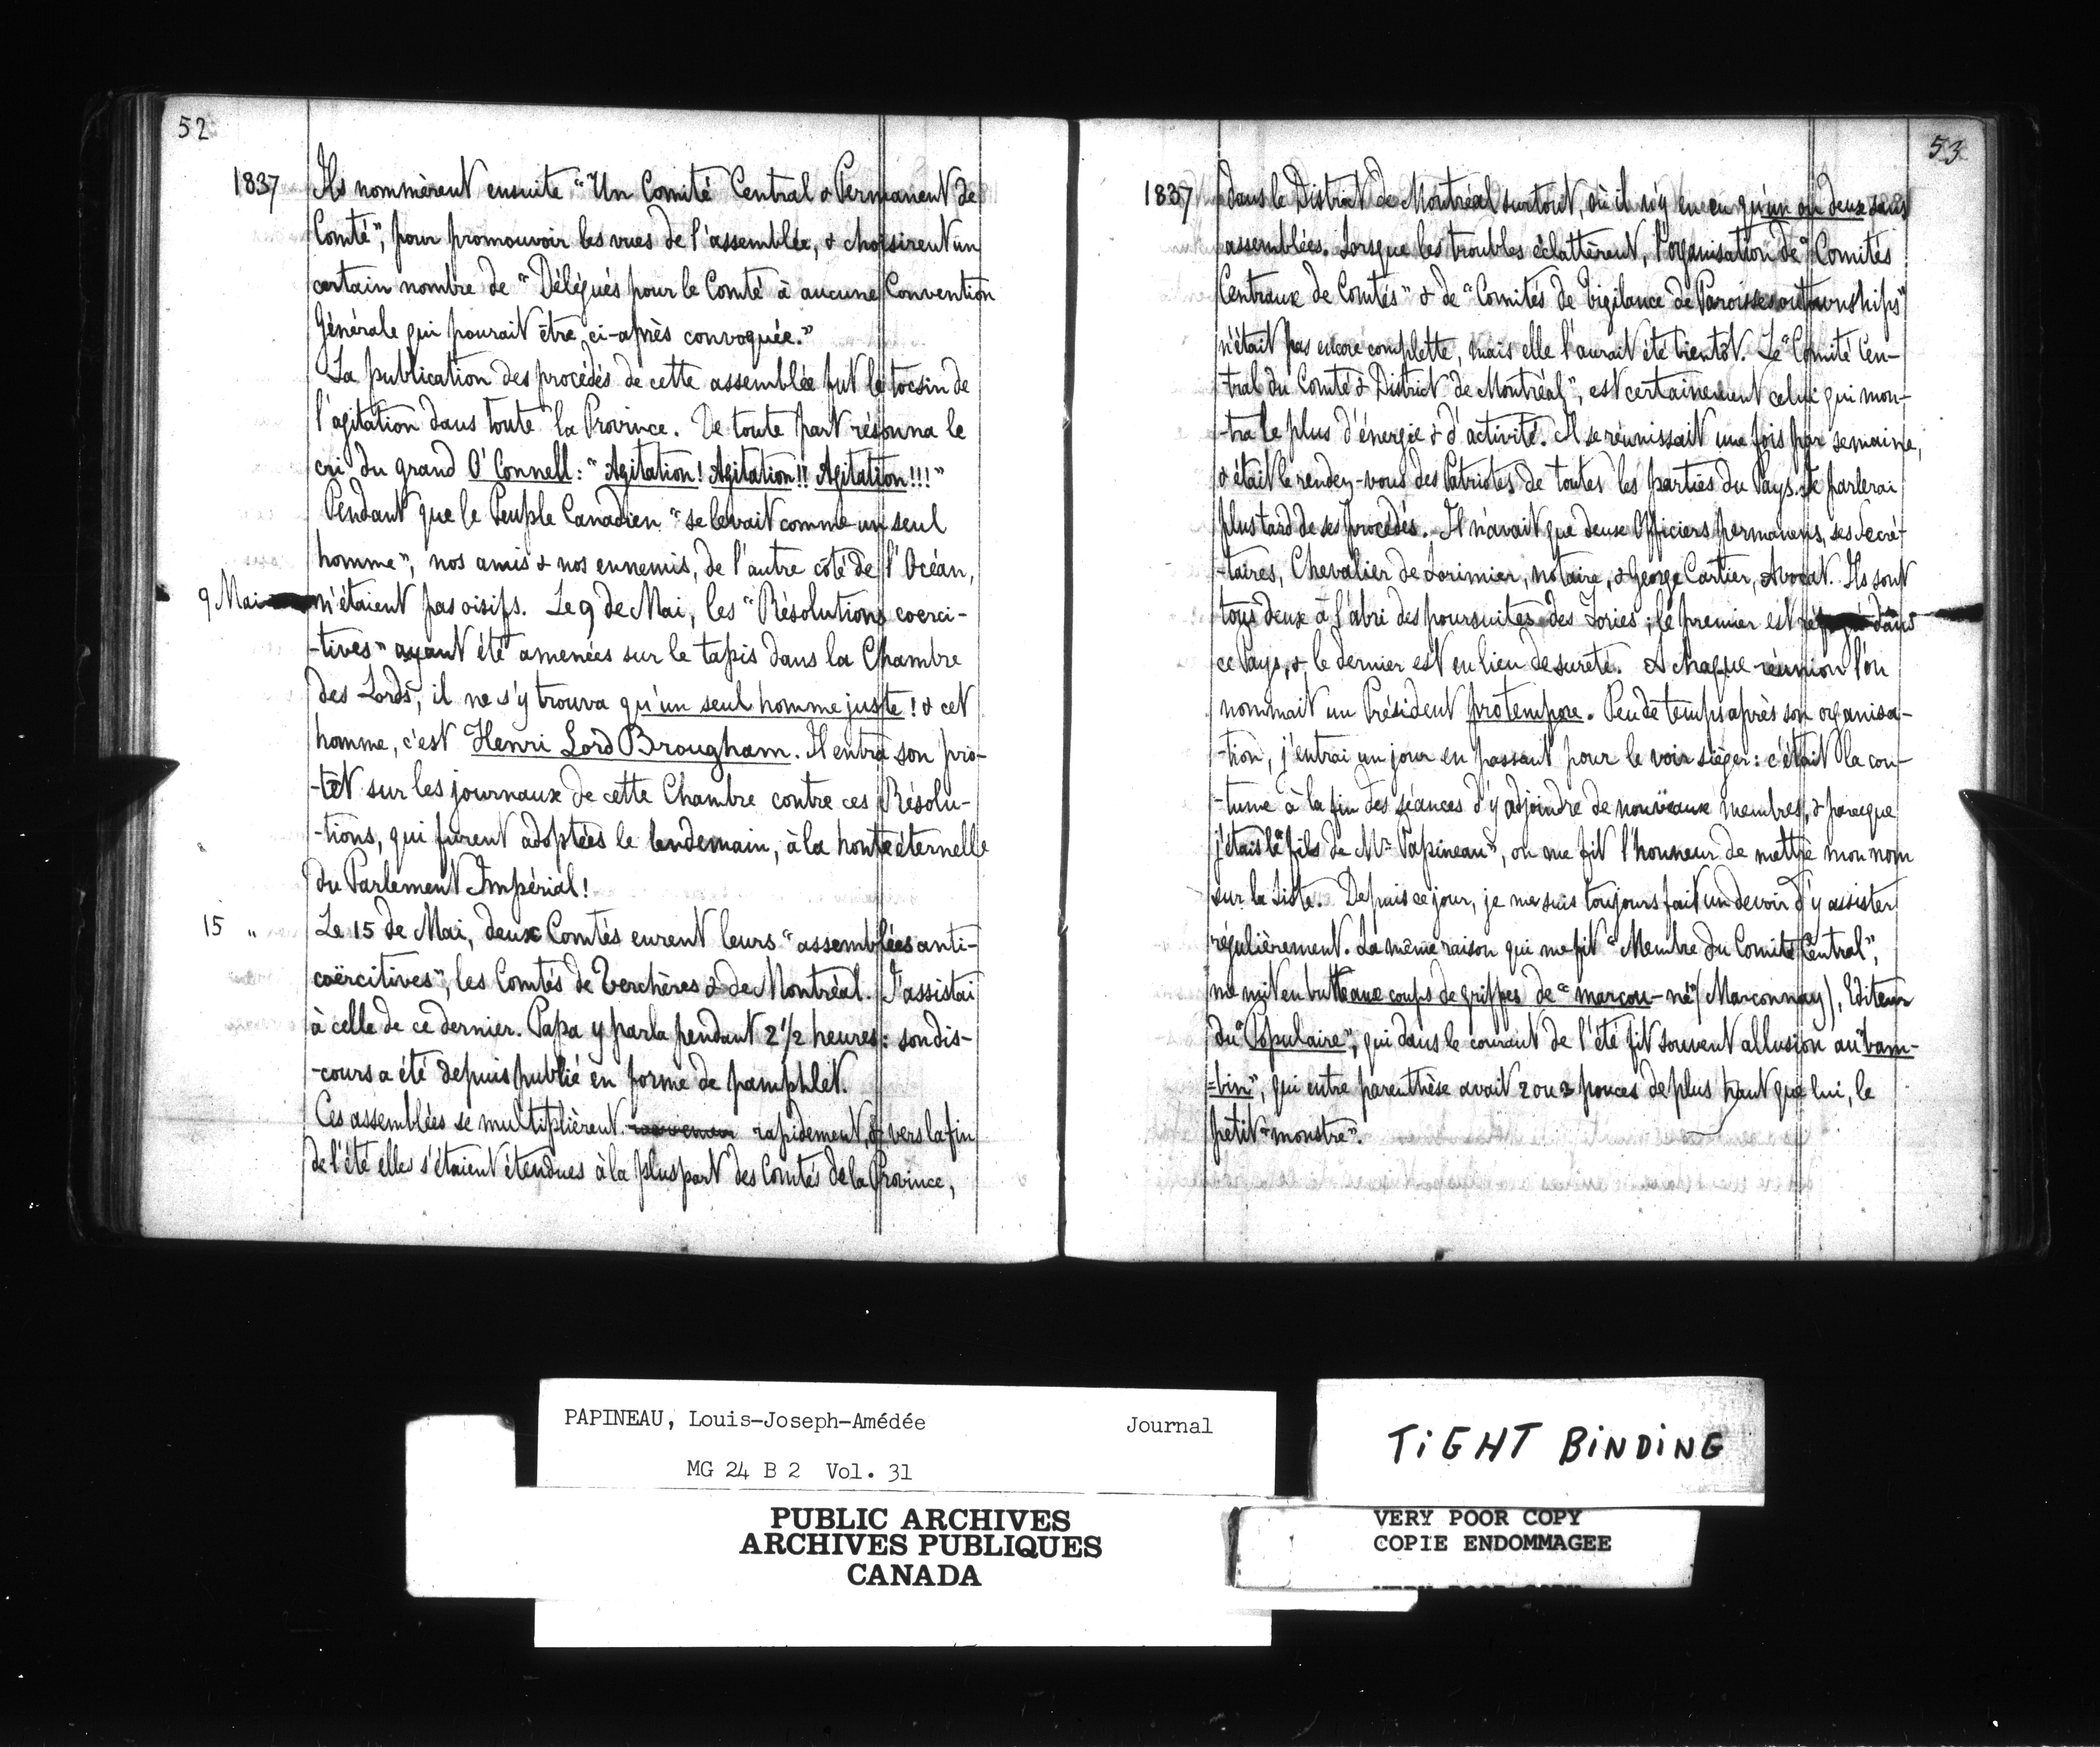 52
1837
Ils nommèrent ensuite "Un Comité Central & Permanent de
Comté", pour promouvoir les vues de l'assemblée, & choisirent un
certain nombre de "Délégués pour le Comté à aucune Convention
Générale qui pourait être ci-après convoquée."
La publication des procédés de cette assemblée fut le tocsin de
l'agitation dans toute la Province. De toute part résonna le
cri du grand O'Connell: "Agitation! Agitation!! Agitation!!!"
Pendant que le Peuple Canadien "se levait comme un seul
homme", nos amis & nos ennemis, de l'autre côté de l'Océan,
9 Mai
n'étaient pas oisifs. Le 9 de Mai, les "Résolutions coerci-
-tives" ayant été amenées sur le tapis dans la Chambre
des Lords, il ne s'y trouva qu'un seul homme juste! & cet
homme, c'est Henri Lord Brougham. Il entra son pro-
-têt sur les journaux de cette Chambre contre ces Résolu-
-tions, qui furent adoptées le lendemain, à la honte éternelle
du Parlement Impérial!
15 "
Le 15 de Mai, deux Comtés eurent leurs "assemblées anti-
coërcitives", les Comtés de Verchères & de Montréal. J'assistai
à celle de ce dernier. Papa y parla pendant 2 1/2 heures: son dis-
-cours a été depuis publié en forme de pamphlet.
Ces assemblées se multiplièrent rapidement, & vers la fin
de l'été elles s'étaient étendues à la pluspart des Comtés de la Province,
53
1837
dans le District de Montréal surtout, où il n'y en eu qu'un ou deux sans
assemblées. Lorsque les troubles éclattèrent, l'organisation de "Comités
Centraux de Comtés" & de "Comités de Vigilance de Paroisses ou townships"
n'était pas encore complette, mais elle l'aurait été bientôt. Le "Comité Cen-
-tral du Comté & District de Montréal", est certainement celui qui mon-
-tra le plus d'énergie & d'activité. Il se réunissait une fois par semaine,
& était le rendez-vous des Patriotes de toutes les parties du Pays. Je parlerai
plus tard de ses procédés. Il n'avait que deux Officiers permanens, ses Secré-
-taires, Chevalier de Lorimier, notaire, & George Cartier, Avocat. Ils sont
tous deux à l'abri des poursuites des Tories; le premier est dans
ce Pays, & le dernier est en lieu de sureté. A chaque réunion l'on
nommait un Président protempore. Peu de temps après son organisa-
-tion, j'entrai un jour en passant pour le voir siéger: c'était la cou-
-tume à la fin des séances d'y adjoindre de nouveaux membres, & parceque
j'étais le "fils de Mr Papineau", on me fit l'honneur de mettre mon nom
sur la Liste. Depuis ce jour, je me suis toujours fait un devoir d'y assister
régulièrement. La même raison qui me fit "Membre du Comité Central",
me mit en butte aux coups de griffes de "marcou-né" (Marconnay), Editeur
du "Populaire", qui dans le courant de l'été fit souvent allusion au "bam-
=bin", qui entre parenthèse avait 2 ou 3 pouces de plus haut que lui, le
petit "monstre".
PAPINEAU, Louis-Joseph-Amédée Journal
MG 24 B 2 Vol. 31
PUBLIC ARCHIVES
ARCHIVES PUBLIQUES
CANADA
TIGHT BINDING
VERY POOR COPY
COPIE ENDOMMAGEE
VERY POOR COPY